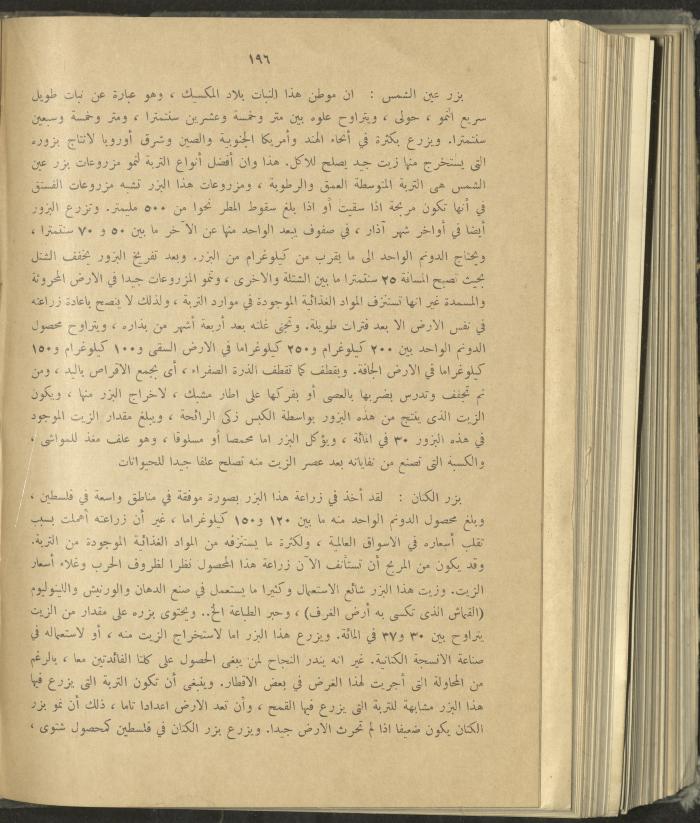 ١٩٦
بزر عين الشمس : ان موطن هذا النبات بلاد المكسيك ، وهو عبارة عن نبات طويل
سريع النمو ، حولى ، ويتراوح علوه بين متر وخمسة وعشرين سنتمترا ، ومتر وخمسة وسبعين
سنتمترا. ويزرع بكثرة في أنحاء الهند وأمريكا الجنوبية والصين وشرق أوروبا لانتاج بزوره
التى يستخرج منها زيت جيد يصلح للاكل. هذا وان أفضل أنواع التربة لنمو مزروعات بزر عين
الشمس هى التربة المتوسطة العمق والرطوبة ، ومزروعات هذا البزر تشبه مزروعات الفستق
في أنها تكون مربحة اذا سقيت أو اذا بلغ سقوط المطر نحوا من ٥٠٠ مليمتر. وتزرع البزور
أيضا في أواخر شهر آذار ، في صفوف يبعد الواحد منها عن الآخر ما بين ٥٠ و ٧٠ سنتمترا ،
ويحتاج الدونم الواحد الى ما يقرب من كيلوغرام من البزر. وبعد تفريخ البزور يخفف الشتل
بحيث تصبح المسافة ٢٥ سنتمترا ما بين الشتلة والاخرى ، وتنمو المزروعات جيدا في الارض المحروثة
والمسمدة غير انها تستنزف المواد الغذائية الموجودة في موارد التربة ، ولذلك لا ينصح باعادة زراعته
في نفس الارض الا بعد فترات طويلة. وتجنى غلته بعد أربعة أشهر من بذاره ، ويتراوح محصول
الدونم الواحد بين ٢٠٠ كيلوغرام و٢٥٠ كيلوغراما في الارض السقى و١٠٠ كيلوغرام و١٥٠
كيلوغراما في الارض الجافة. ويقطف كما تقطف الذرة الصفراء ، أى بجمع الاقراص باليد ، ومن
ثم تجفف وتدرس بضربها بالعصى أو بفركها على اطار مشبك ، لاخراج البزر منها ، ويكون
الزيت الذى ينتج من هذه البزور بواسطة الكبس زكى الرائحة ، ويبلغ مقدار الزيت الموجود
في هذه البزور ٣٠ في المائة ، ويؤكل البزر اما محمصا أو مسلوقا ، وهو علف مغذ للمواشى ،
والكسبة التى تصنع من نفاياته بعد عصر الزيت منه تصلح علفا جيدا للحيوانات
بزر الكتان : لقد أخذ في زراعة هذا البزر بصورة موفقة في مناطق واسعة في فلسطين ،
ويبلغ محصول الدونم الواحد منه ما بين ١٢٠ و١٥٠ كيلوغراما ، غير أن زراعته أهملت بسبب
تقلب أسعاره في الاسواق العالمية ، ولكثرة ما يستنزفه من المواد الغذائية الموجودة من التربة.
وقد يكون من المربح أن تستأنف الآن زراعة هذا المحصول نظرا لظروف الحرب وغلاء أسعار
الزيت. وزيت هذا البزر شائع الاستعمال وكثيرا ما يستعمل في صنع الدهان والورنيش واللينوليوم
(القماش الذى تكسى به أرض الغرف) ، وحبر الطباعة الخ.. ويحتوى بزره على مقدار من الزيت
يتراوح بين ٣٠ و٣٧ في المائة. ويزرع هذا البزر اما لاستخراج الزيت منه ، أو لاستعماله في
صناعة الانسجة الكتانية. غير انه يندر النجاح لمن يبغى الحصول على كلتا الفائدتين معا ، بالرغم
من المحاولة التى أجريت لهذا الغرض في بعض الاقطار. وينبغى أن تكون التربة التى يزرع فيها
هذا البزر مشابهة للتربة التى يزرع فيها القمح ، وأن تعد الارض اعدادا تاما ، ذلك أن نمو بزر
الكتان يكون ضعيفا اذا لم تحرث الارض جيدا. ويزرع بزر الكتان في فلسطين كمحصول شتوى ،